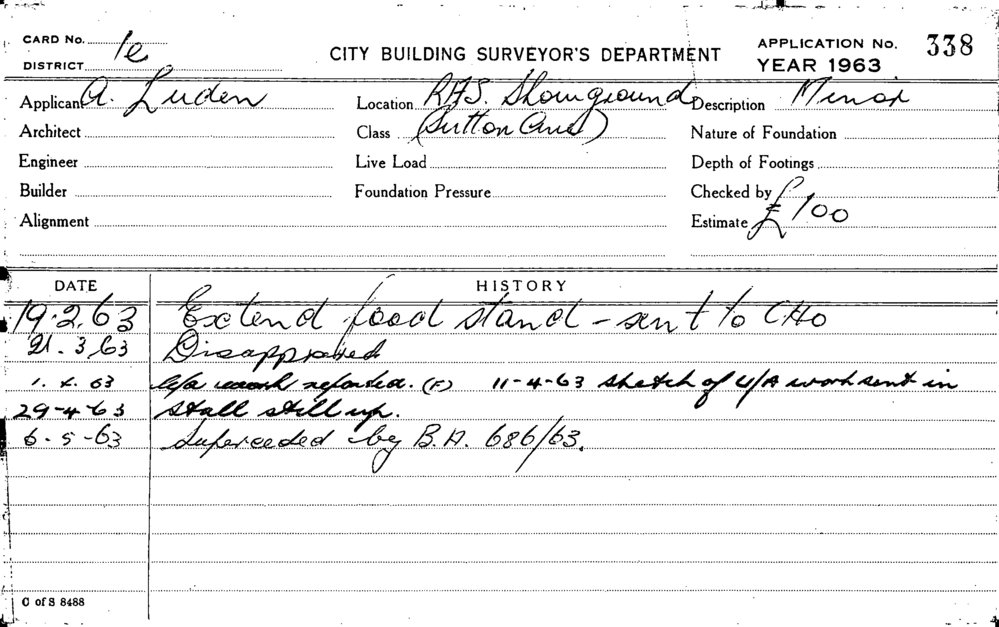 CARD No. 1e
DISTRICT
CITY BUILDING SURVEYOR'S DEPARTMENT
APPLICATION No. 338
YEAR 1963
Applicant A. Luden
Location R.A.S. Showground
Description Minor
Architect
Class (Sutton Ave)
Nature of Foundation
Engineer
Live Load
Depth of Footings
Builder
Foundation Pressure
Checked by
Alignment
Estimate £100
DATE
HISTORY
19.2.63 Extend food stand - sent to CHO
21.3.63 Disapproved
1.4.63 U/a work reported. (F) 11-4-63 Sketch of U/A work sent in
29-4-63 Stall still up.
6-5-63 Superceeded by B.A. 686/63.
C of S 8488